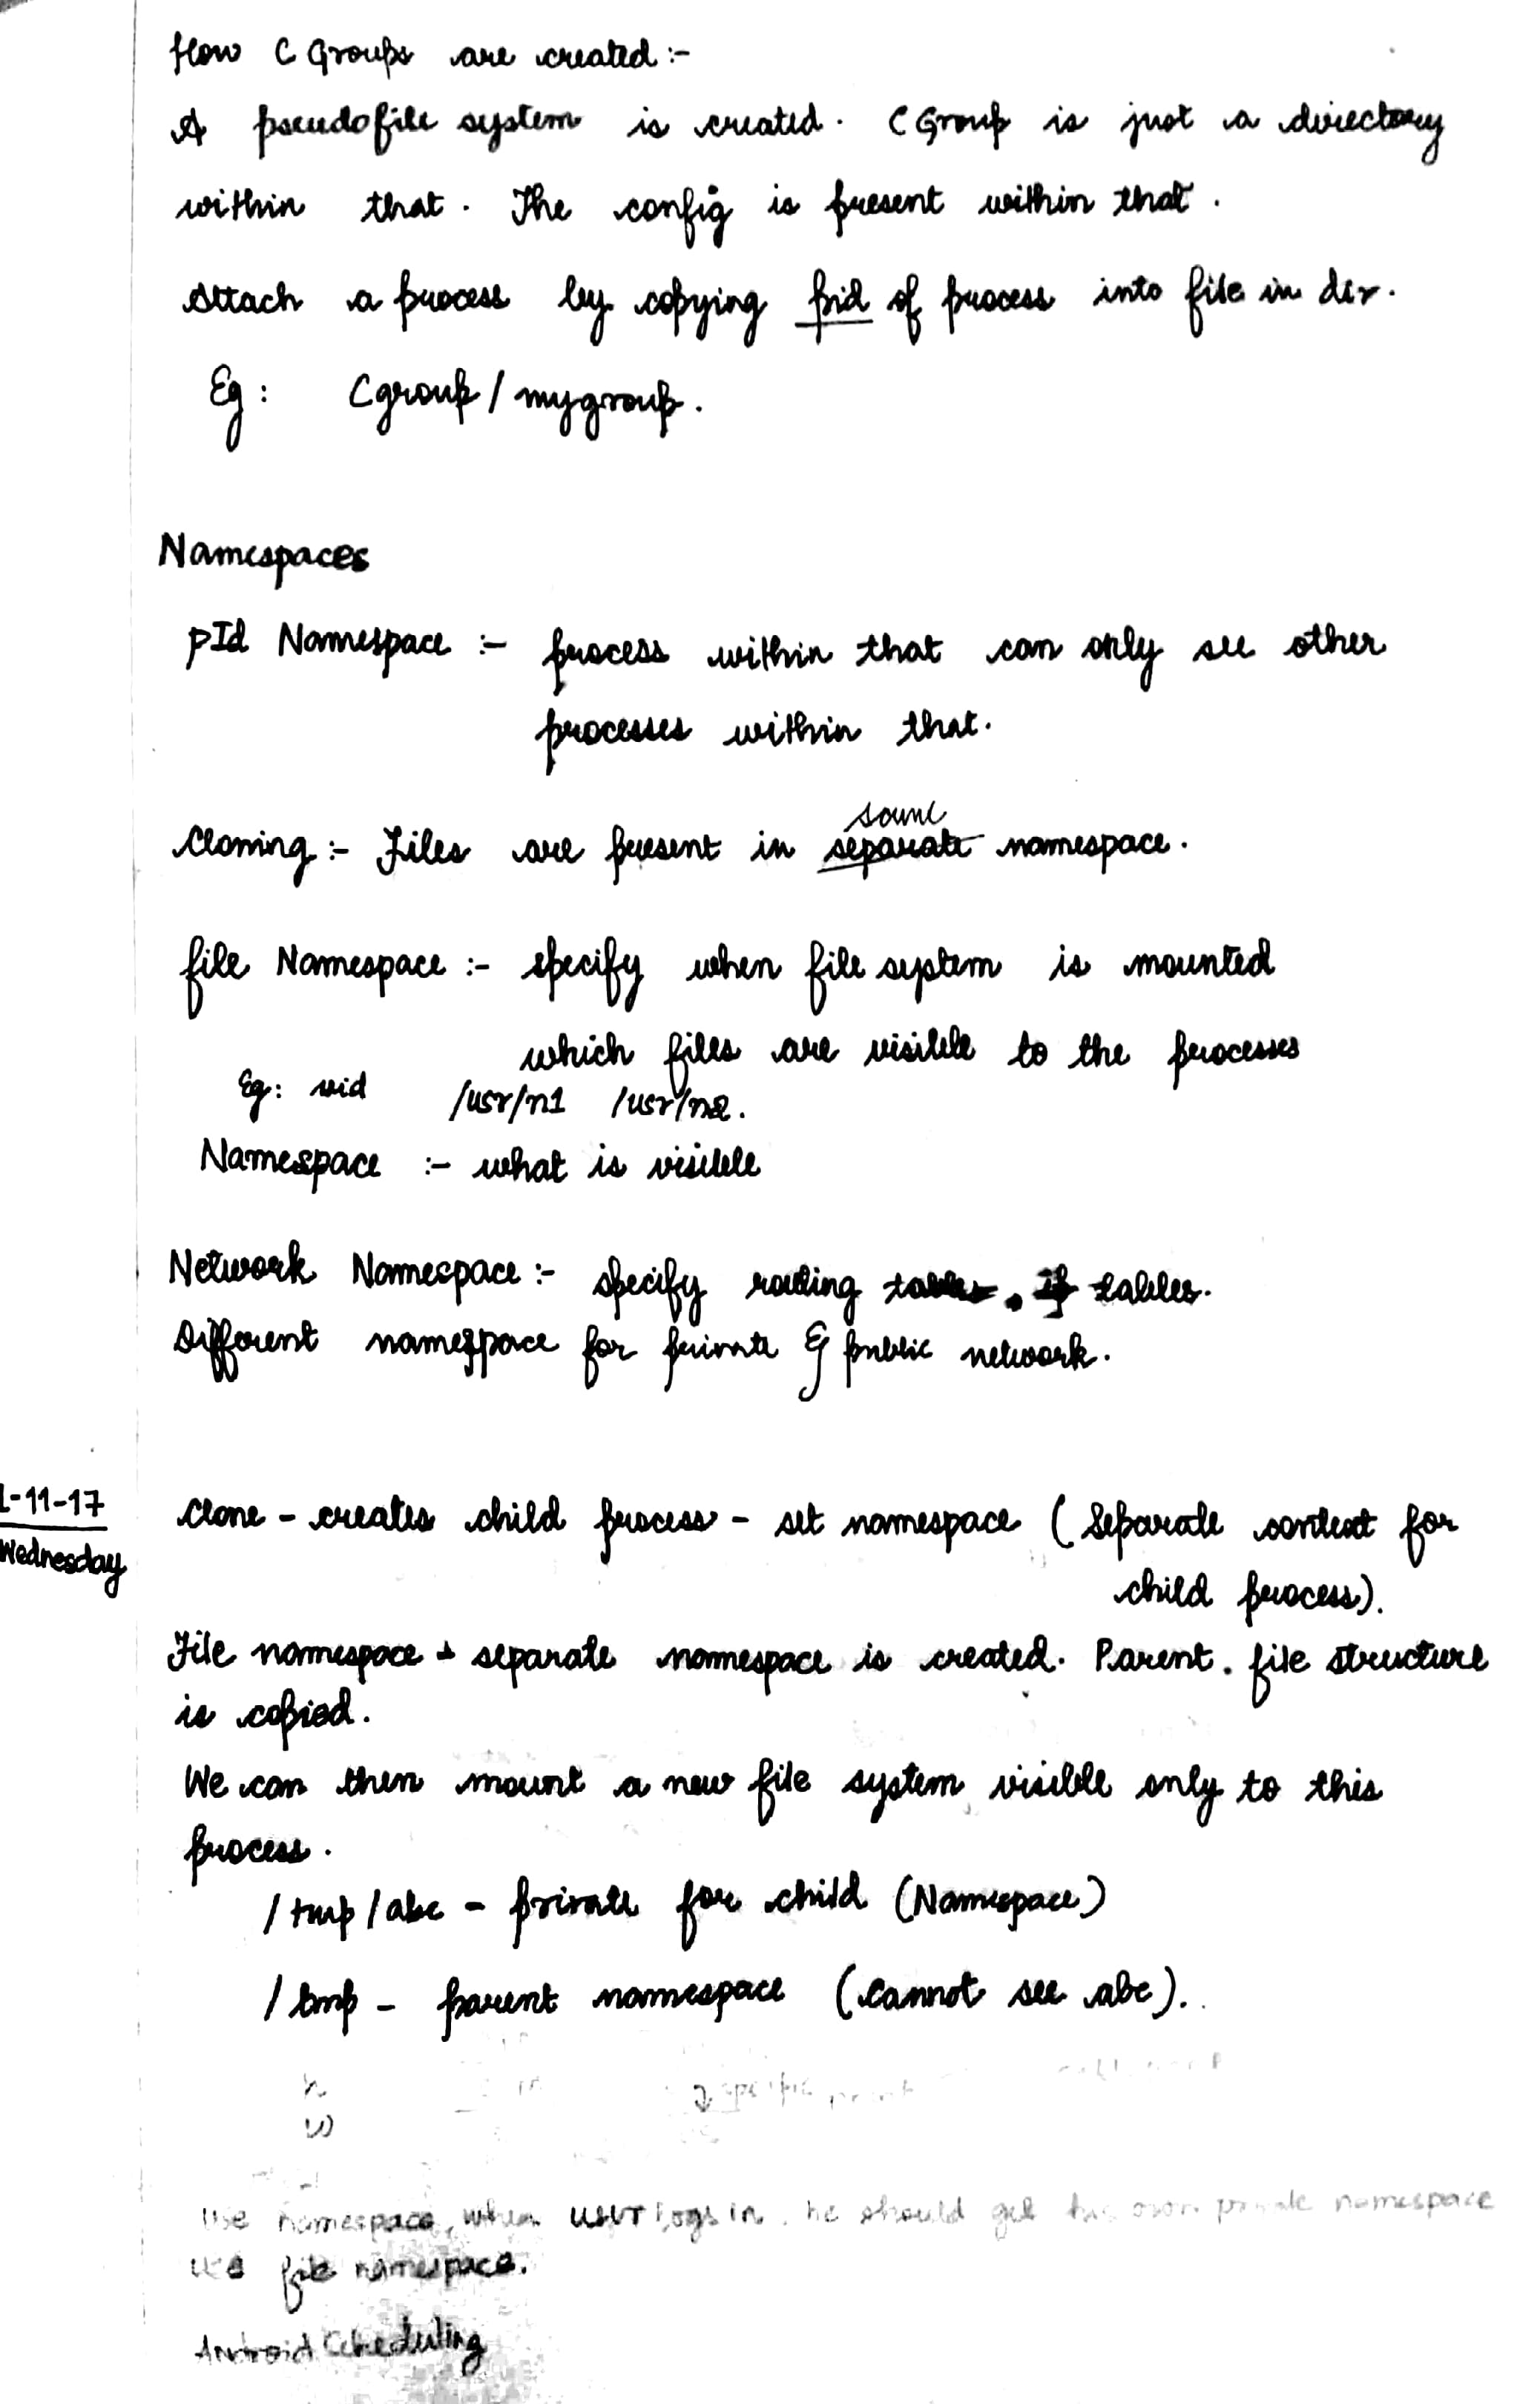 How C Groups are created :-
A pseudofile system is created. C Group is just a directory
within that. The config is present within that.
Attach a process by copying pid of process into file in dir.
Eg: Cgroup / mygroup.
Namespaces
pId Namespace :- process within that can only see other
processes within that.
same
Cloning :- Files are present in separate namespace.
file Namespace :- specify when file system is mounted
which files are visible to the processes
Eg: /usr/n1 /usr/n2.
Namespace :- what is visible
Network Namespace :- specify routing tables. tables.
Different namespace for private & public network.
1-11-17
Wednesday
Clone - creates child process - set namespace (Separate context for
child process).
File namespace - separate namespace is created. Parent. file structure
is copied.
We can then mount a new file system visible only to this
process.
/ tmp / abc - private for child (Namespace)
/ tmp - parent namespace (Cannot see abc).
specific
Use namespace, when user logs in, he should get his own private namespace
use file namespace.
Android Scheduling